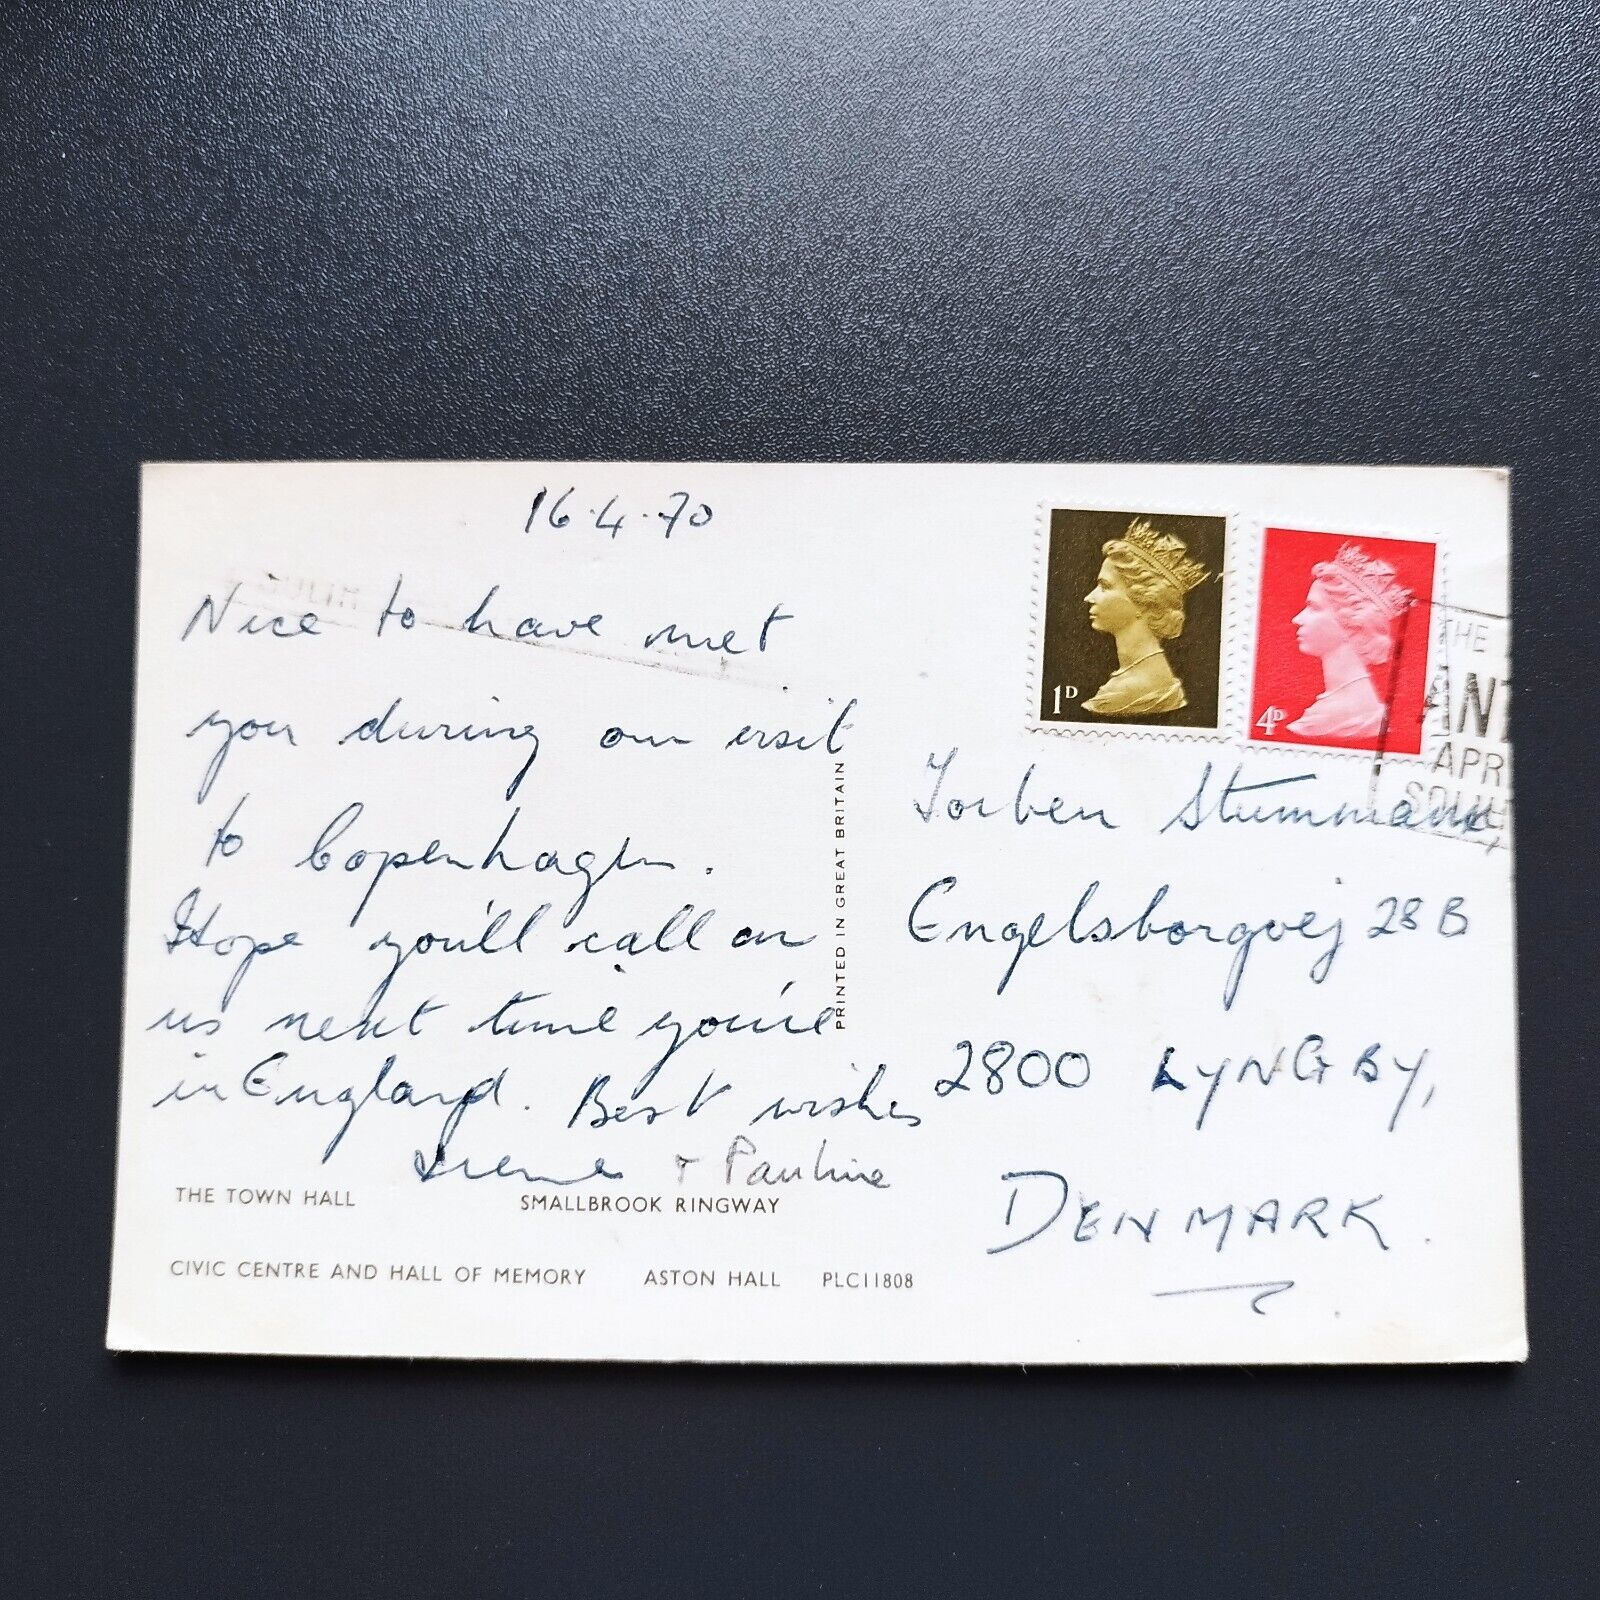 16.4.70
Nice to have met
you during our visit
to Copenhagen.
Hope you'll call on
us next time you're
in England. Best wishes
Irene + Pauline
THE TOWN HALL SMALLBROOK RINGWAY
CIVIC CENTRE AND HALL OF MEMORY ASTON HALL PLC11808
PRINTED IN GREAT BRITAIN
1D
4D
THE
APR
Torben Stummann,
Engelsborgvej 28 B
2800 LYNGBY,
DENMARK.